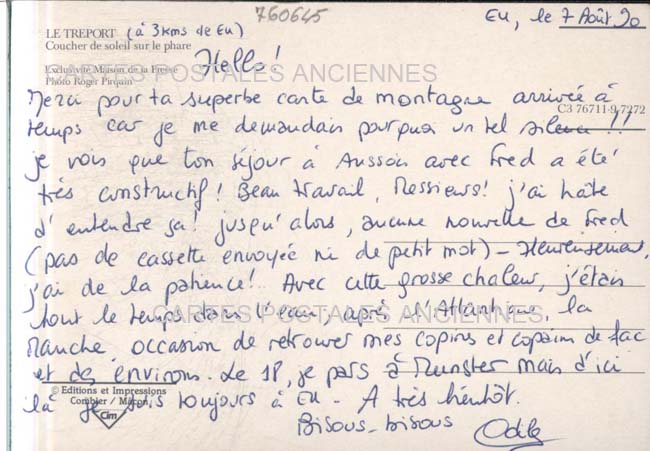 760645
EU, le 7 Août 90
LE TREPORT (à 3kms de EU)
Coucher de soleil sur le phare
Hello!
Exclusivité Maison de la Presse
Photo Roger Pirquin
CARTES POSTALES ANCIENNES
Merci pour ta superbe carte de montagne arrivée à
C3 76711-9.7272
temps car je me demandais pourquoi un tel silence !!
je vois que ton séjour à Aussois avec Fred a été
très constructif! Beau travail, Messieurs! j'ai hâte
d'entendre ça! jusqu'alors, aucune nouvelle de Fred
(pas de cassette envoyée ni de petit mot) - Heureusement,
j'ai de la patience!.. Avec cette grosse chaleur, j'étais
CARTES POSTALES ANCIENNES
tout le temps dans l'eau, après l'Atlantique, la
Manche. occasion de retrouver mes copins et copains de fac
et des environs. Le 18, je pars à Munster mais d'ici
© Editions et Impressions
Combier / Mâcon
là je suis toujours à EU - A très bientôt.
Cim
Bisous-bisous Odile